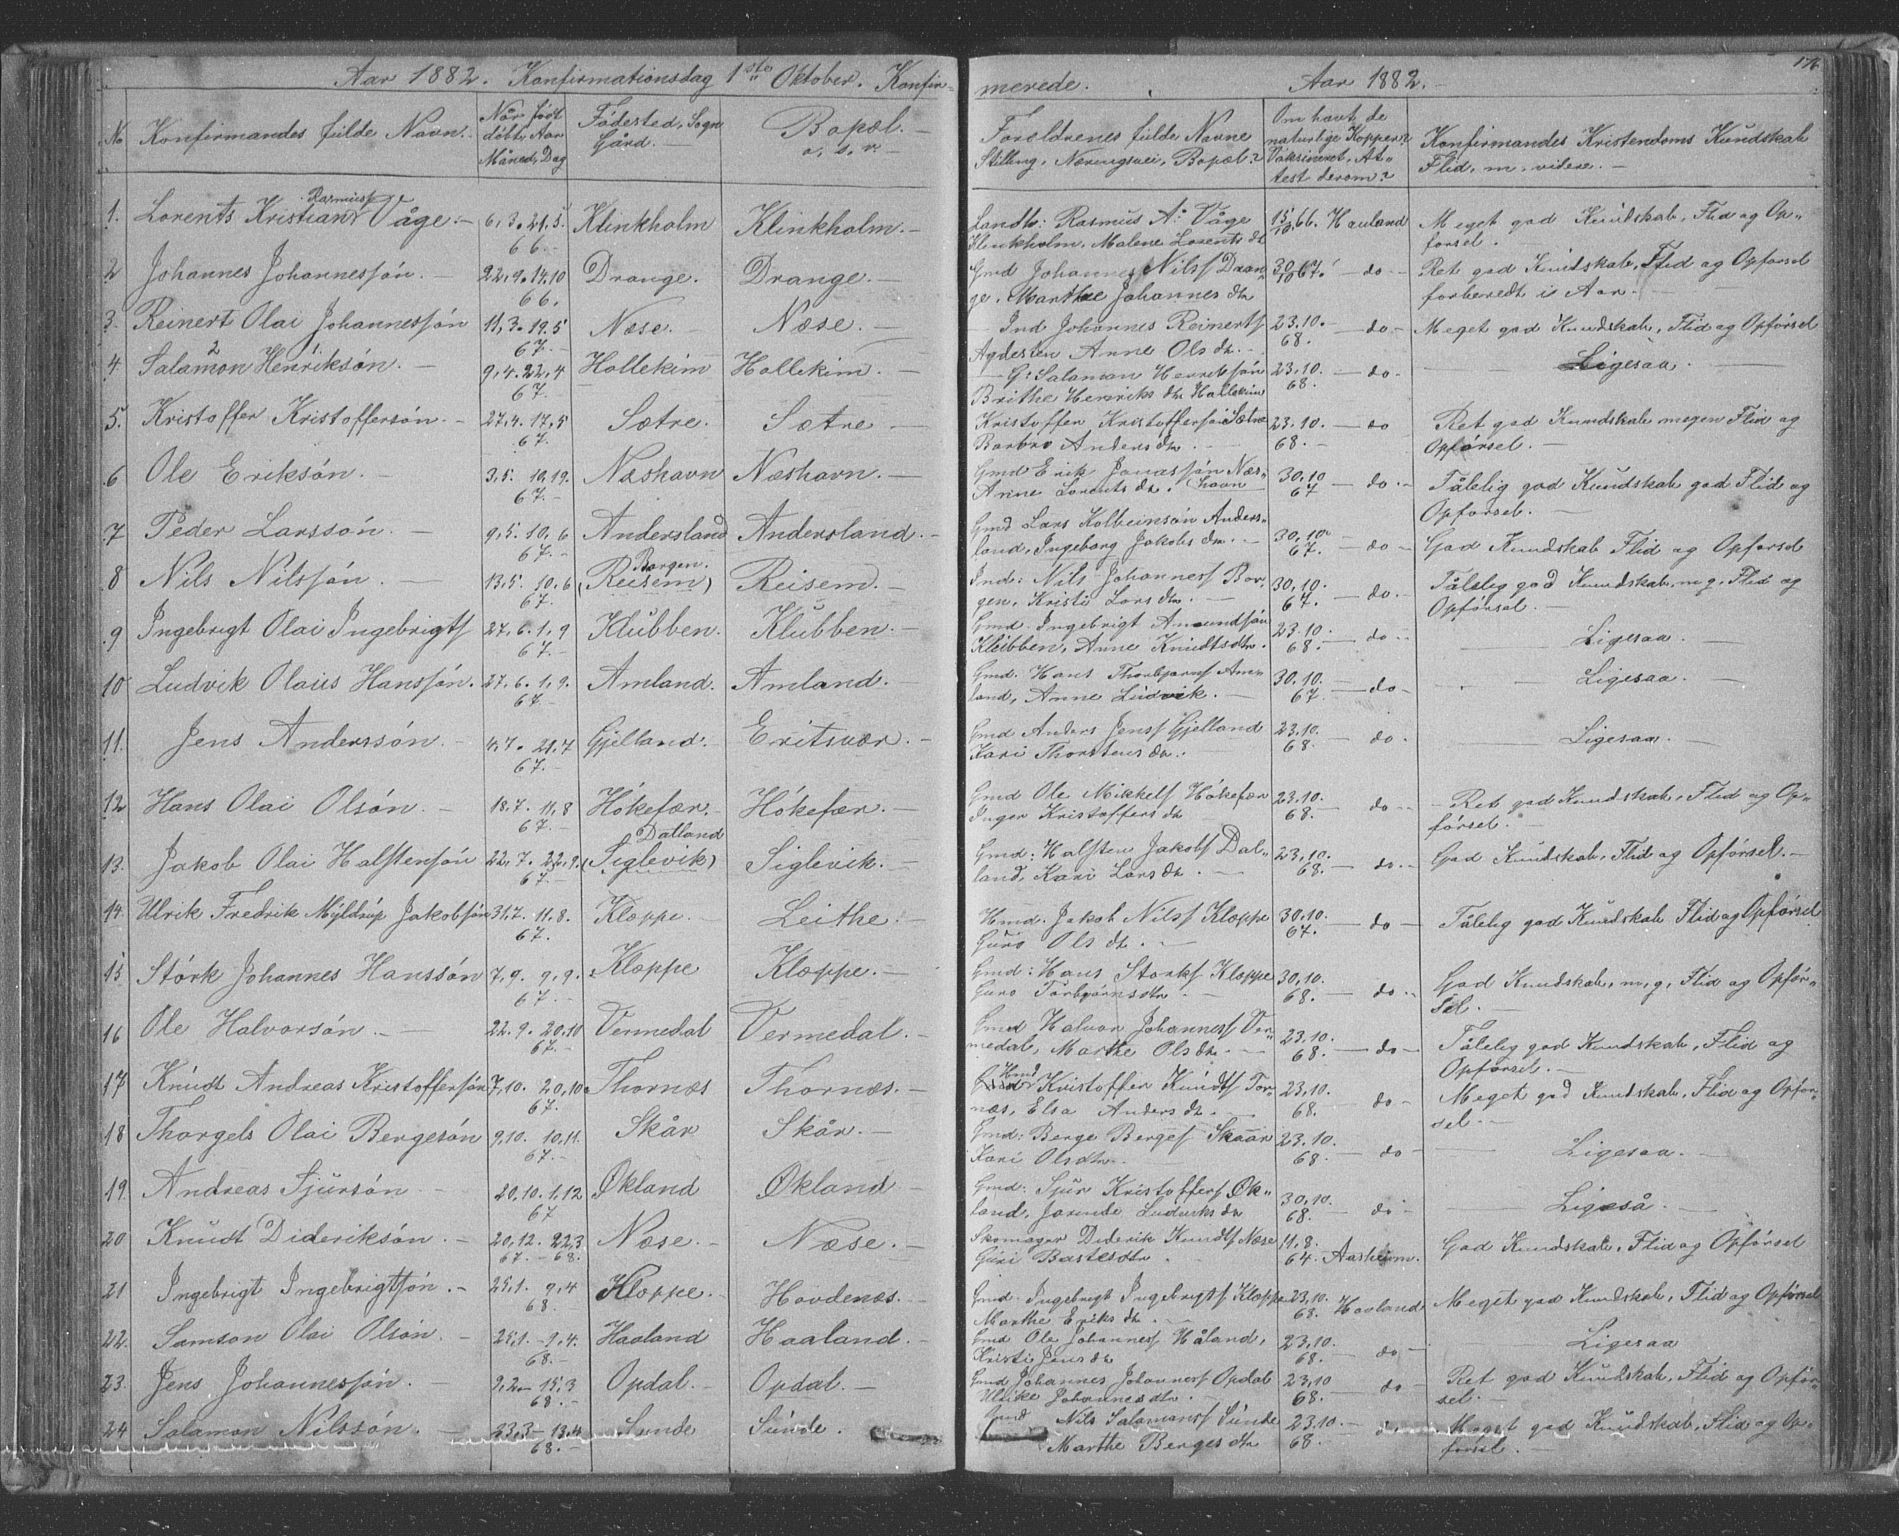 176
Aar 1882. Konfirmationsdag 1ste Oktober. Konfir-
merede. Aar 1882.
No Konfirmandes fulde Navn. Når født döbt, Aar Måned, Dag Födested, Sogn Gård. Bopæl. o. s. v. Forældrenes fulde Navne Stilling, Næringsvei, Bopæl? Om havt de naturlige Kopper? Vaksineret, Attest derom? Konfirmandes Kristendoms Kundskab Flid, m. videre.
1. Lorents Kristian Rasmuss Våge. 6,3. 21,5 66. Klinkholm Klinkholm. Landh: Rasmus A. Våge Klinkholm, Malene Lorents dt 15/10 66. Hauland Meget god Kundskab, Flid og Op-
førsel.
2 Johannes Johannessön. 22,9. 14,10 66. Drange. Drange. Gmd Johannes Nilss Dran-
ge, Marthe Johannes dtr 30/10 67. do Ret god Kundskab, Flid og Opførsel
forberedt i Aar.
3. Reinert Olai Johannessön 11,3. 19,5 67. Næse. Næse. Ind Johannes Reinerts
Agdesten Anne Ols dtr. 23,10. 68. do Meget god Kundskab, Flid og Opførsel
4. Salamon Henriksön. 9,4. 22,4 67. Hollekim Hollekim. G: Salamon Henriksön
Brithe Henriks dtr Hollekim 23,10. 68. do. Ligesaa
5. Kristoffer Kristoffersön. 27,4. 17,5 67. Sætre. Sætre Kristoffer Kristoffersön Sætre
Barbro Anders dtr. 23.10. 68. do Ret god Kundskab megen Flid og
Opførsel.
6 Ole Eriksön. 3,5. 19,19. 67. Næshavn Næshavn. Gmd Erik Jonassön Næs-
Anne Lorents dtr. havn 30,10 67 do. Tålelig god Kundskab god Flid og
Opførsel.
7 Peder Larssön. 9,5. 10,6 67. Andersland Andersland. Gmd Lars Kolbeinsön Anders-
land, Ingeborg Jakobs dtr. 30,10. 67. do God Kundskab Flid og Opførsel
8 Nils Nilssön. 13,5. 10,6 67. Borgen. (Reisem) Reisem. Ind: Nils Johanness Bor-
gen, Kristi Lars dtr. 30,10. 67. do. Tålelig god Kundskab, m. g. Flid og
Opførsel.
9 Ingebrigt Olai Ingebrigts 27,6. 1,9 67. Klubben. Klubben. Gmd. Ingebrigt Amundsön
Klubben, Anne Knudtsdtr. 23.10. 68. do Ligesaa.
10 Ludvik Olaus Hanssön. 27,6. 1,9. 67. Amland. Amland. Gmd. Hans Thorbjørns Am-
land, Anne Ludvik. 30.10. 67. do Ligesaa.
11. Jens Anderssön. 4,7. 21,7 67. Gjelland. Eritsvær. Gmd Anders Jenss Gjelland
Kari Thorstens dtr. 23,10. 68. do. Ligesaa.
12 Hans Olai Olsön. 18.7. 11,8 67. Hökefær. Hökefær. Gmd Ole Mikkels Hökefær
Inger Kristoffers dtr 23,10. 68. do Ret god Kundskab, Flid og Op-
førsel.
13. Jakob Olai Halstensön 22,7. 22,9. 67. Dalland (Siglevik) Siglevik. Gmd: Halsten Jakobs Dal-
land, Kari Lars dtr. 23,10. 68. do. God Kundskab, Flid og Opførsel.
14. Ulrik Fredrik Myldrup Jakobsön 31,7. 11,8. 67. Kloppe. Leithe. Hmd. Jakob Nilss Kloppe
Guro Ols dtr. 30,10. 67. do Tålelig god Kundskab Flid og Opførsel
15 Störk Johannes Hanssön 7,9. 9,9. 67. Kloppe Kloppe. Gmd: Hans Störks Kloppe
Guro Torbjørnsdtr. 30,10. 68. do. God Kundskab, m. g. Flid og Opför-
sel.
16 Ole Halvorsön. 22.9. 20,10 67. Vermedal Vermedal. Gmd Halvor Johanness Ver-
medal, Marthe Ols dtr. 23,10. 68. do Tålelig god Kundskab, Flid og
Opførsel.
17 Knudt Andreas Kristoffersön 7,10. 20,10 67. Thornæs Thornæs. Hmd Kristoffer Knudts Tor-
næs, Elsa Anders dtr. 23,10. 68. do Meget god Kundskab, Flid og Opför-
sel.
18 Thorgels Olai Bergesön 9,10. 10,11. 67. Skår Skår. Gmd: Berge Berges Skaar
Kari Olsdtr. 23.10. 68. do Ligesaa.
19. Andreas Sjursön 20,10. 1,12 67 Økland Økland Gmd: Sjur Kristoffers Øk-
land, Jorunde Ludviks dtr 30,10. 68. do Ligeså.
20 Knudt Dideriksön. 20,12. 22,3 67. - 68. Næse. Næse. Skomager Diderik Knudts Næse
Guri Bastesdtr. 11,8. 64. Aasheim. God Kundskab, Flid og Opførsel
21 Ingebrigt Ingebrigtsön. 25,1. 9,4 68. Kloppe. Hovdenæs. Gmd. Ingebrigt Ingebrigts Kloppe
Marthe Eriks dtr. 23,10. 68. Hauland Meget god Kundskab, Flid og Opførsel
22. Samson Olai Olsön. 25,1. 9,4. 68. Haaland Haaland. Gmd Ole Johanness Håland,
Kristi Jens dtr 23,10. 68. do Ligesaa
23. Jens Johannessön. 9,2 15,3 68. Opdal. Opdal. Gmd Johannes Johanness Opdal
Ulrike Johannesdtr. 23,10 68. do Ret god Kundskab, Flid og Opför-
sel.
24 Salamon Nilssön. 23,3 13,4 68. Sunde Sunde. Gmd Nils Salamons Sunde
Marthe Berges dtr 23,10. 68. do Meget god Kundskab, Flid og Op-
førsel.